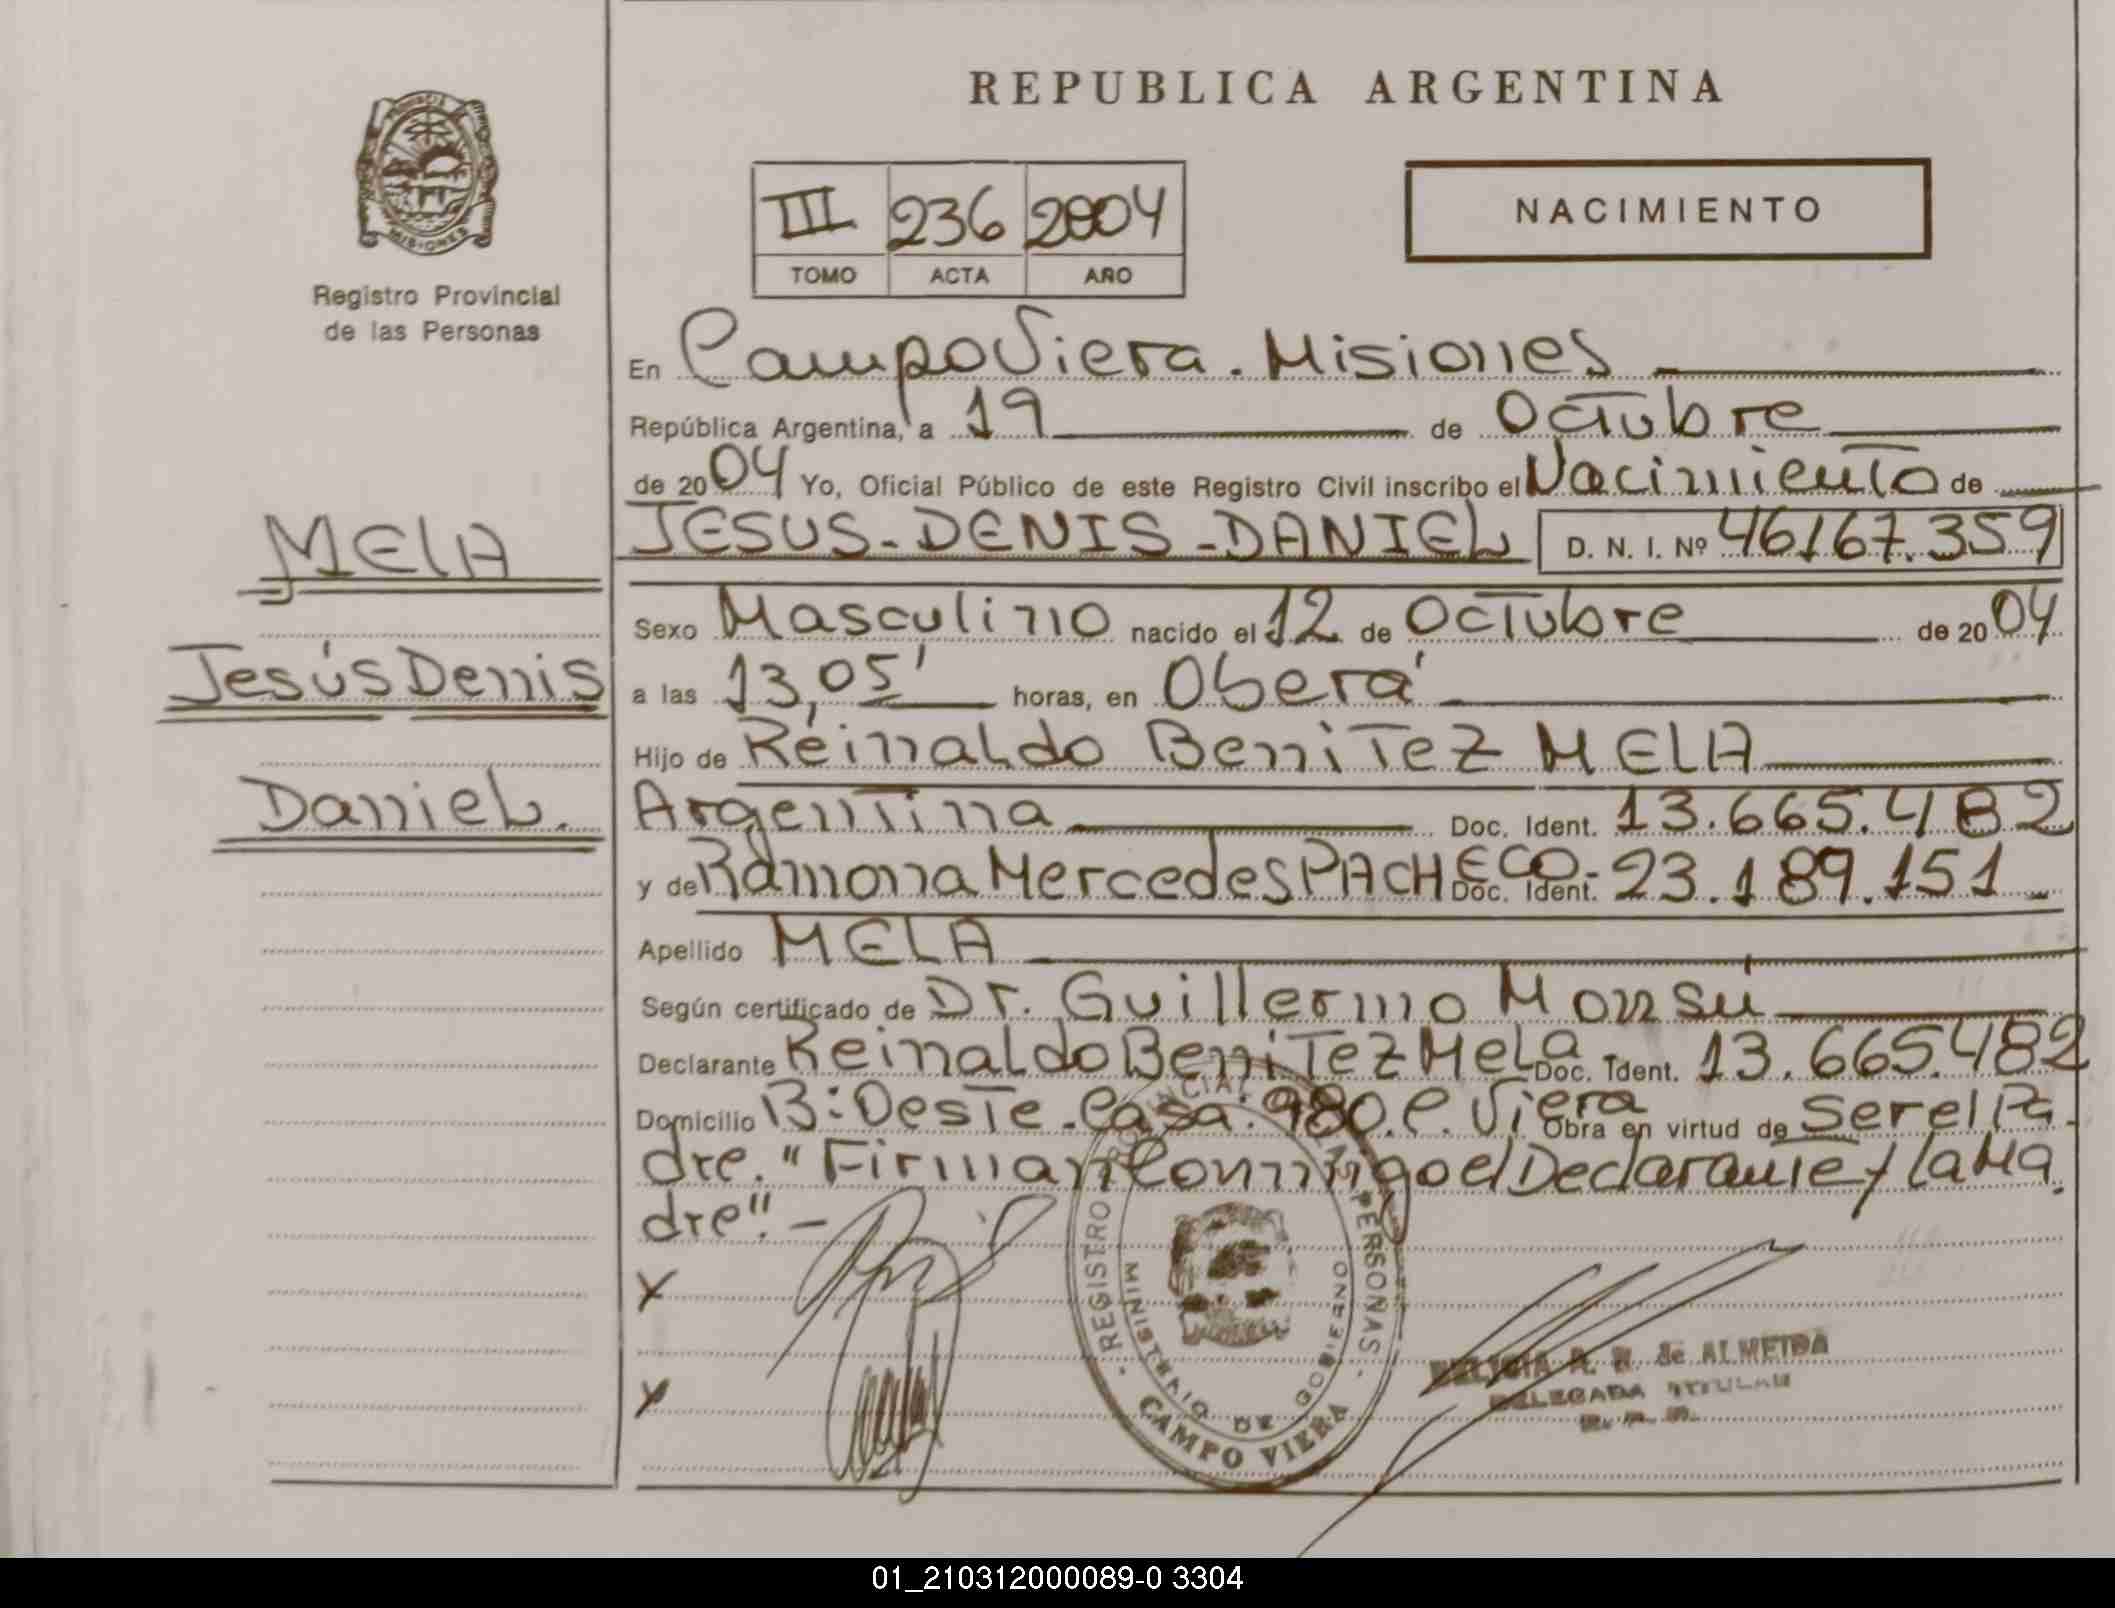 REPUBLICA ARGENTINA
PROVINCIA
MISIONES
Registro Provincial
de las Personas
III 236 2004
TOMO ACTA AÑO
NACIMIENTO
En Campo Viera. Misiones
República Argentina, a 19 de Octubre
de 2004 Yo, Oficial Público de este Registro Civil inscribo el Nacimiento de
JESUS-DENIS-DANIEL D. N. I. Nº 46167.359
MELA
Jesús Denis
Daniel.
Sexo Masculino nacido el 12 de Octubre de 2004
a las 13,05' horas, en Oberá
Hijo de Reinaldo Benitez MELA
Argentina Doc. Ident. 13.665.482
y de Ramona Mercedes PACHECO- Doc. Ident. 23.189.151
Apellido MELA
Según certificado de Dr. Guillermo Monsú
Declarante Reinaldo Benitez Mela Doc. Ident. 13.665.482
Domicilio B: Oeste. Casa: 980. C. Viera Obra en virtud de ser el Pa
dre. "Firman Conmigo el Declarante y la Ma
dre".-
X
X
REGISTRO PROVINCIAL DE LAS PERSONAS
MINISTERIO DE GOBIERNO
CAMPO VIERA
de ALMEIDA
DELEGADA TITULAR
01_210312000089-0 3304